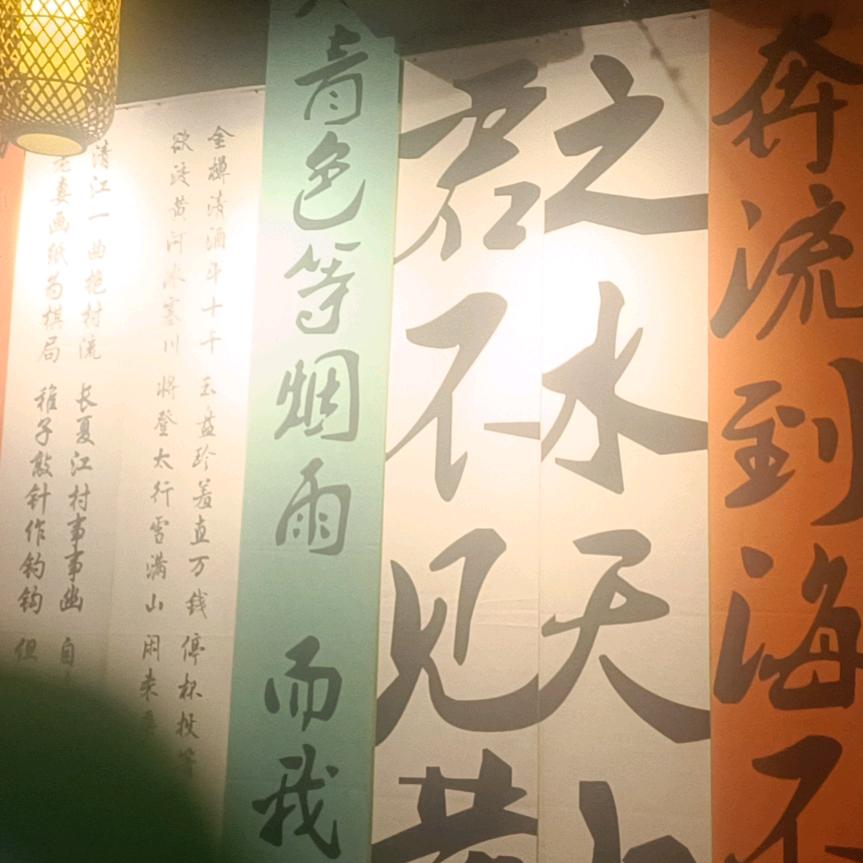 清江一曲抱村流 长夏江村事事幽 自
老妻画纸为棋局 稚子敲针作钓钩 但
金樽清酒斗十千 玉盘珍羞直万钱 停杯投
欲渡黄河冰塞川 将登太行雪满山 闲来
青色等烟雨 而我
君不见黄
之水天
奔流到海不